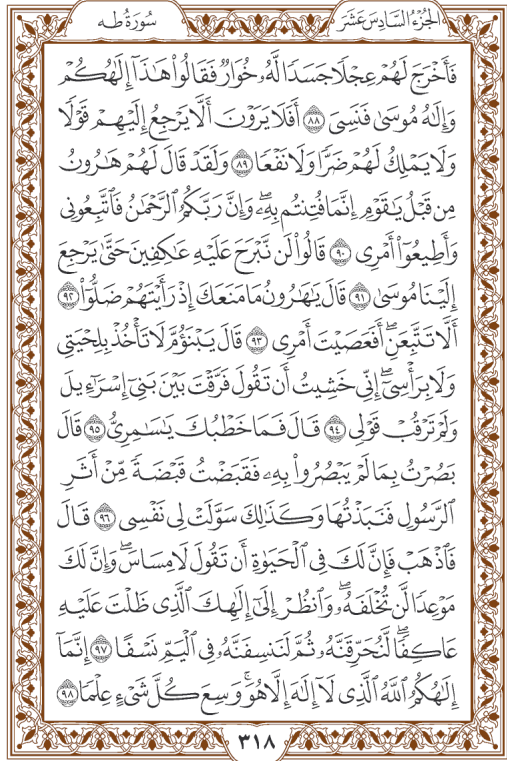 الجُزْءُ السَّادِسَ عَشَرَ
سُورَةُ طه
فَأَخْرَجَ لَهُمْ عِجْلًا جَسَدًا لَّهُۥ خُوَارٌ فَقَالُوا۟ هَٰذَآ إِلَٰهُكُمْ
وَإِلَٰهُ مُوسَىٰ فَنَسِىَ ٨٨ أَفَلَا يَرَوْنَ أَلَّا يَرْجِعُ إِلَيْهِمْ قَوْلًا
وَلَا يَمْلِكُ لَهُمْ ضَرًّا وَلَا نَفْعًا ٨٩ وَلَقَدْ قَالَ لَهُمْ هَٰرُونُ
مِن قَبْلُ يَٰقَوْمِ إِنَّمَا فُتِنتُم بِهِۦ ۖ وَإِنَّ رَبَّكُمُ ٱلرَّحْمَٰنُ فَٱتَّبِعُونِى
وَأَطِيعُوٓا۟ أَمْرِى ٩٠ قَالُوا۟ لَن نَّبْرَحَ عَلَيْهِ عَٰكِفِينَ حَتَّىٰ يَرْجِعَ
إِلَيْنَا مُوسَىٰ ٩١ قَالَ يَٰهَٰرُونُ مَا مَنَعَكَ إِذْ رَأَيْتَهُمْ ضَلُّوٓا۟ ٩٢
أَلَّا تَتَّبِعَنِ ۖ أَفَعَصَيْتَ أَمْرِى ٩٣ قَالَ يَبْنَؤُمَّ لَا تَأْخُذْ بِلِحْيَتِى
وَلَا بِرَأْسِىٓ ۖ إِنِّى خَشِيتُ أَن تَقُولَ فَرَّقْتَ بَيْنَ بَنِىٓ إِسْرَٰٓءِيلَ
وَلَمْ تَرْقُبْ قَوْلِى ٩٤ قَالَ فَمَا خَطْبُكَ يَٰسَٰمِرِىُّ ٩٥ قَالَ
بَصُرْتُ بِمَا لَمْ يَبْصُرُوا۟ بِهِۦ فَقَبَضْتُ قَبْضَةً مِّنْ أَثَرِ
ٱلرَّسُولِ فَنَبَذْتُهَا وَكَذَٰلِكَ سَوَّلَتْ لِى نَفْسِى ٩٦ قَالَ
فَٱذْهَبْ فَإِنَّ لَكَ فِى ٱلْحَيَوٰةِ أَن تَقُولَ لَا مِسَاسَ ۖ وَإِنَّ لَكَ
مَوْعِدًا لَّن تُخْلَفَهُۥ ۖ وَٱنظُرْ إِلَىٰٓ إِلَٰهِكَ ٱلَّذِى ظَلْتَ عَلَيْهِ
عَاكِفًا ۖ لَّنُحَرِّقَنَّهُۥ ثُمَّ لَنَنسِفَنَّهُۥ فِى ٱلْيَمِّ نَسْفًا ٩٧ إِنَّمَآ
إِلَٰهُكُمُ ٱللَّهُ ٱلَّذِى لَآ إِلَٰهَ إِلَّا هُوَ ۚ وَسِعَ كُلَّ شَىْءٍ عِلْمًا ٩٨
٣١٨